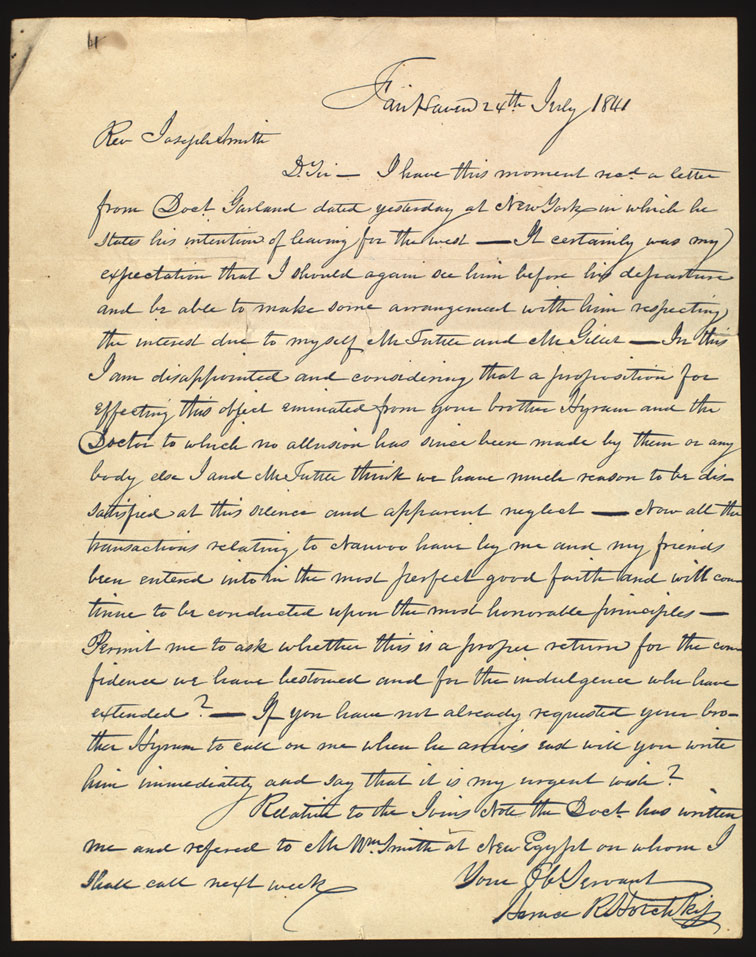 Fair Haven 24th July 1841
Rev Joseph Smith
D. Sir — I have this moment recd a letter
from Doct. Garland dated yesterday at New York in which he
states his intention of leaving for the west — It certainly was my
expectation that I should again see him before his departure
and be able to make some arrangement with him respecting
the interest due to myself Mr Tuttle and Mr Gillet — In this
I am disappointed and considering that a proposition for
effecting this object eminated from your brother Hyrum and the
Doctor to which no allusion has since been made by them or any
body else I and Mr Tuttle think we have much reason to be dis-
satisfied at this silence and apparent neglect — Now all the
transactions relating to Nauvoo have by me and my friends
been enterd into in the most perfect good faith and will con-
tinue to be conducted upon the most honorable principles —
Permit me to ask whether this is a proper return for the con-
fidence we have bestowed and for the indulgence we have
extended? — If you have not already requested your bro-
ther Hyrum to call on me when he arrives east will you write
him immediately and say that it is my urgent wish?
Relative to the Ivins Note the Doct. has written
me and refered to Mr Wm Smith at New Egypt on whom I
shall call next week
Your Ob Servant
Horace R Hotchkiss